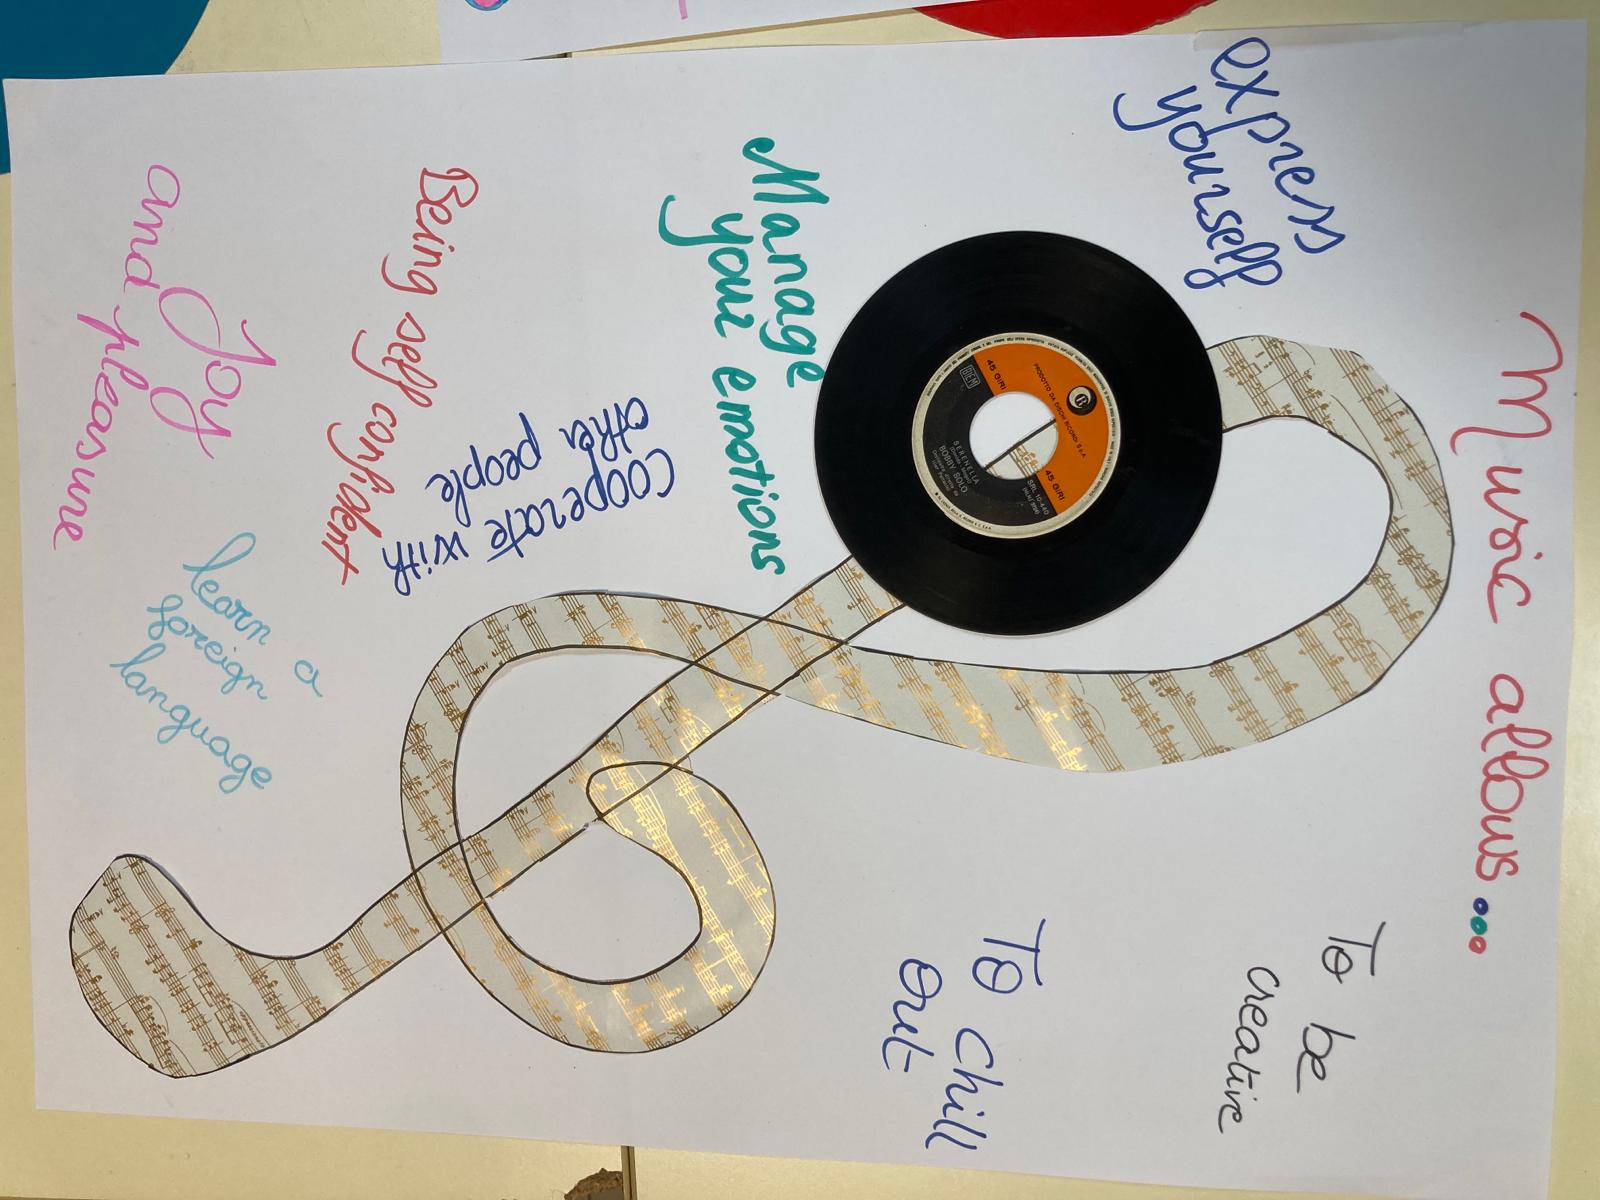 Music allows...
express
yourself
To be
creative
Manage
your emotions
To chill
out
cooperate with
other people
Being self confident
Joy
and pleasure
learn a
foreign
language
PRODOTTO DA DISCHI RICORDI S.p.A.
45 GIRI
45 GIRI
BIEM
SRL 10-440
SERENELLA
BOBBY SOLO